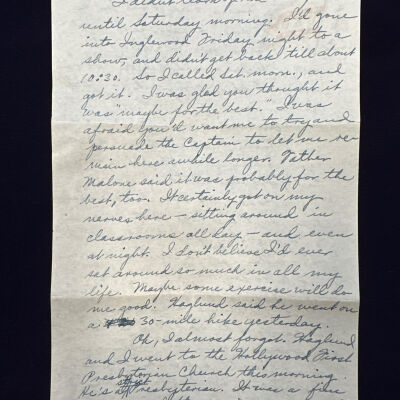 I didn't
until Saturday morning. I'd gone
into Inglewood Friday night to a
show, and didn't get back till about
10:30. So I called Sat. morn., and
got it. I was glad you thought it
was "maybe for the best." I was
afraid you'd want me to try and
persuade the Captain to let me re-
main here awhile longer. Father
Malone said it was probably for the
best, too. It certainly got on my
nerves here – sitting around in
classrooms all day – and even
at night. I don't believe I'd ever
set around so much in all my
life. Maybe some exercise will do
me good. Haglund said he went on
a 30-mile hike yesterday.
Oh, I almost forgot. Haglund
and I went to the Hollywood First
Presbyterian Church this morning.
He's a Presbyterian. It was a fine